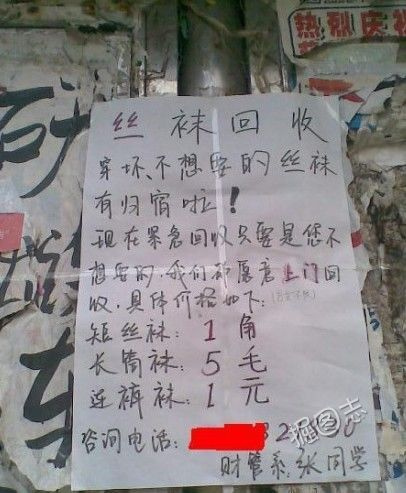 热烈庆祝
丝袜回收
穿坏、不想要的丝袜
有归宿啦！
现在紧急回收只要是您不
想要的，我们都愿意上门回
收，具体价格如下：
短丝袜：1角
长筒袜：5毛
连裤袜：1元
咨询电话：
财管系：张同学
掘图志